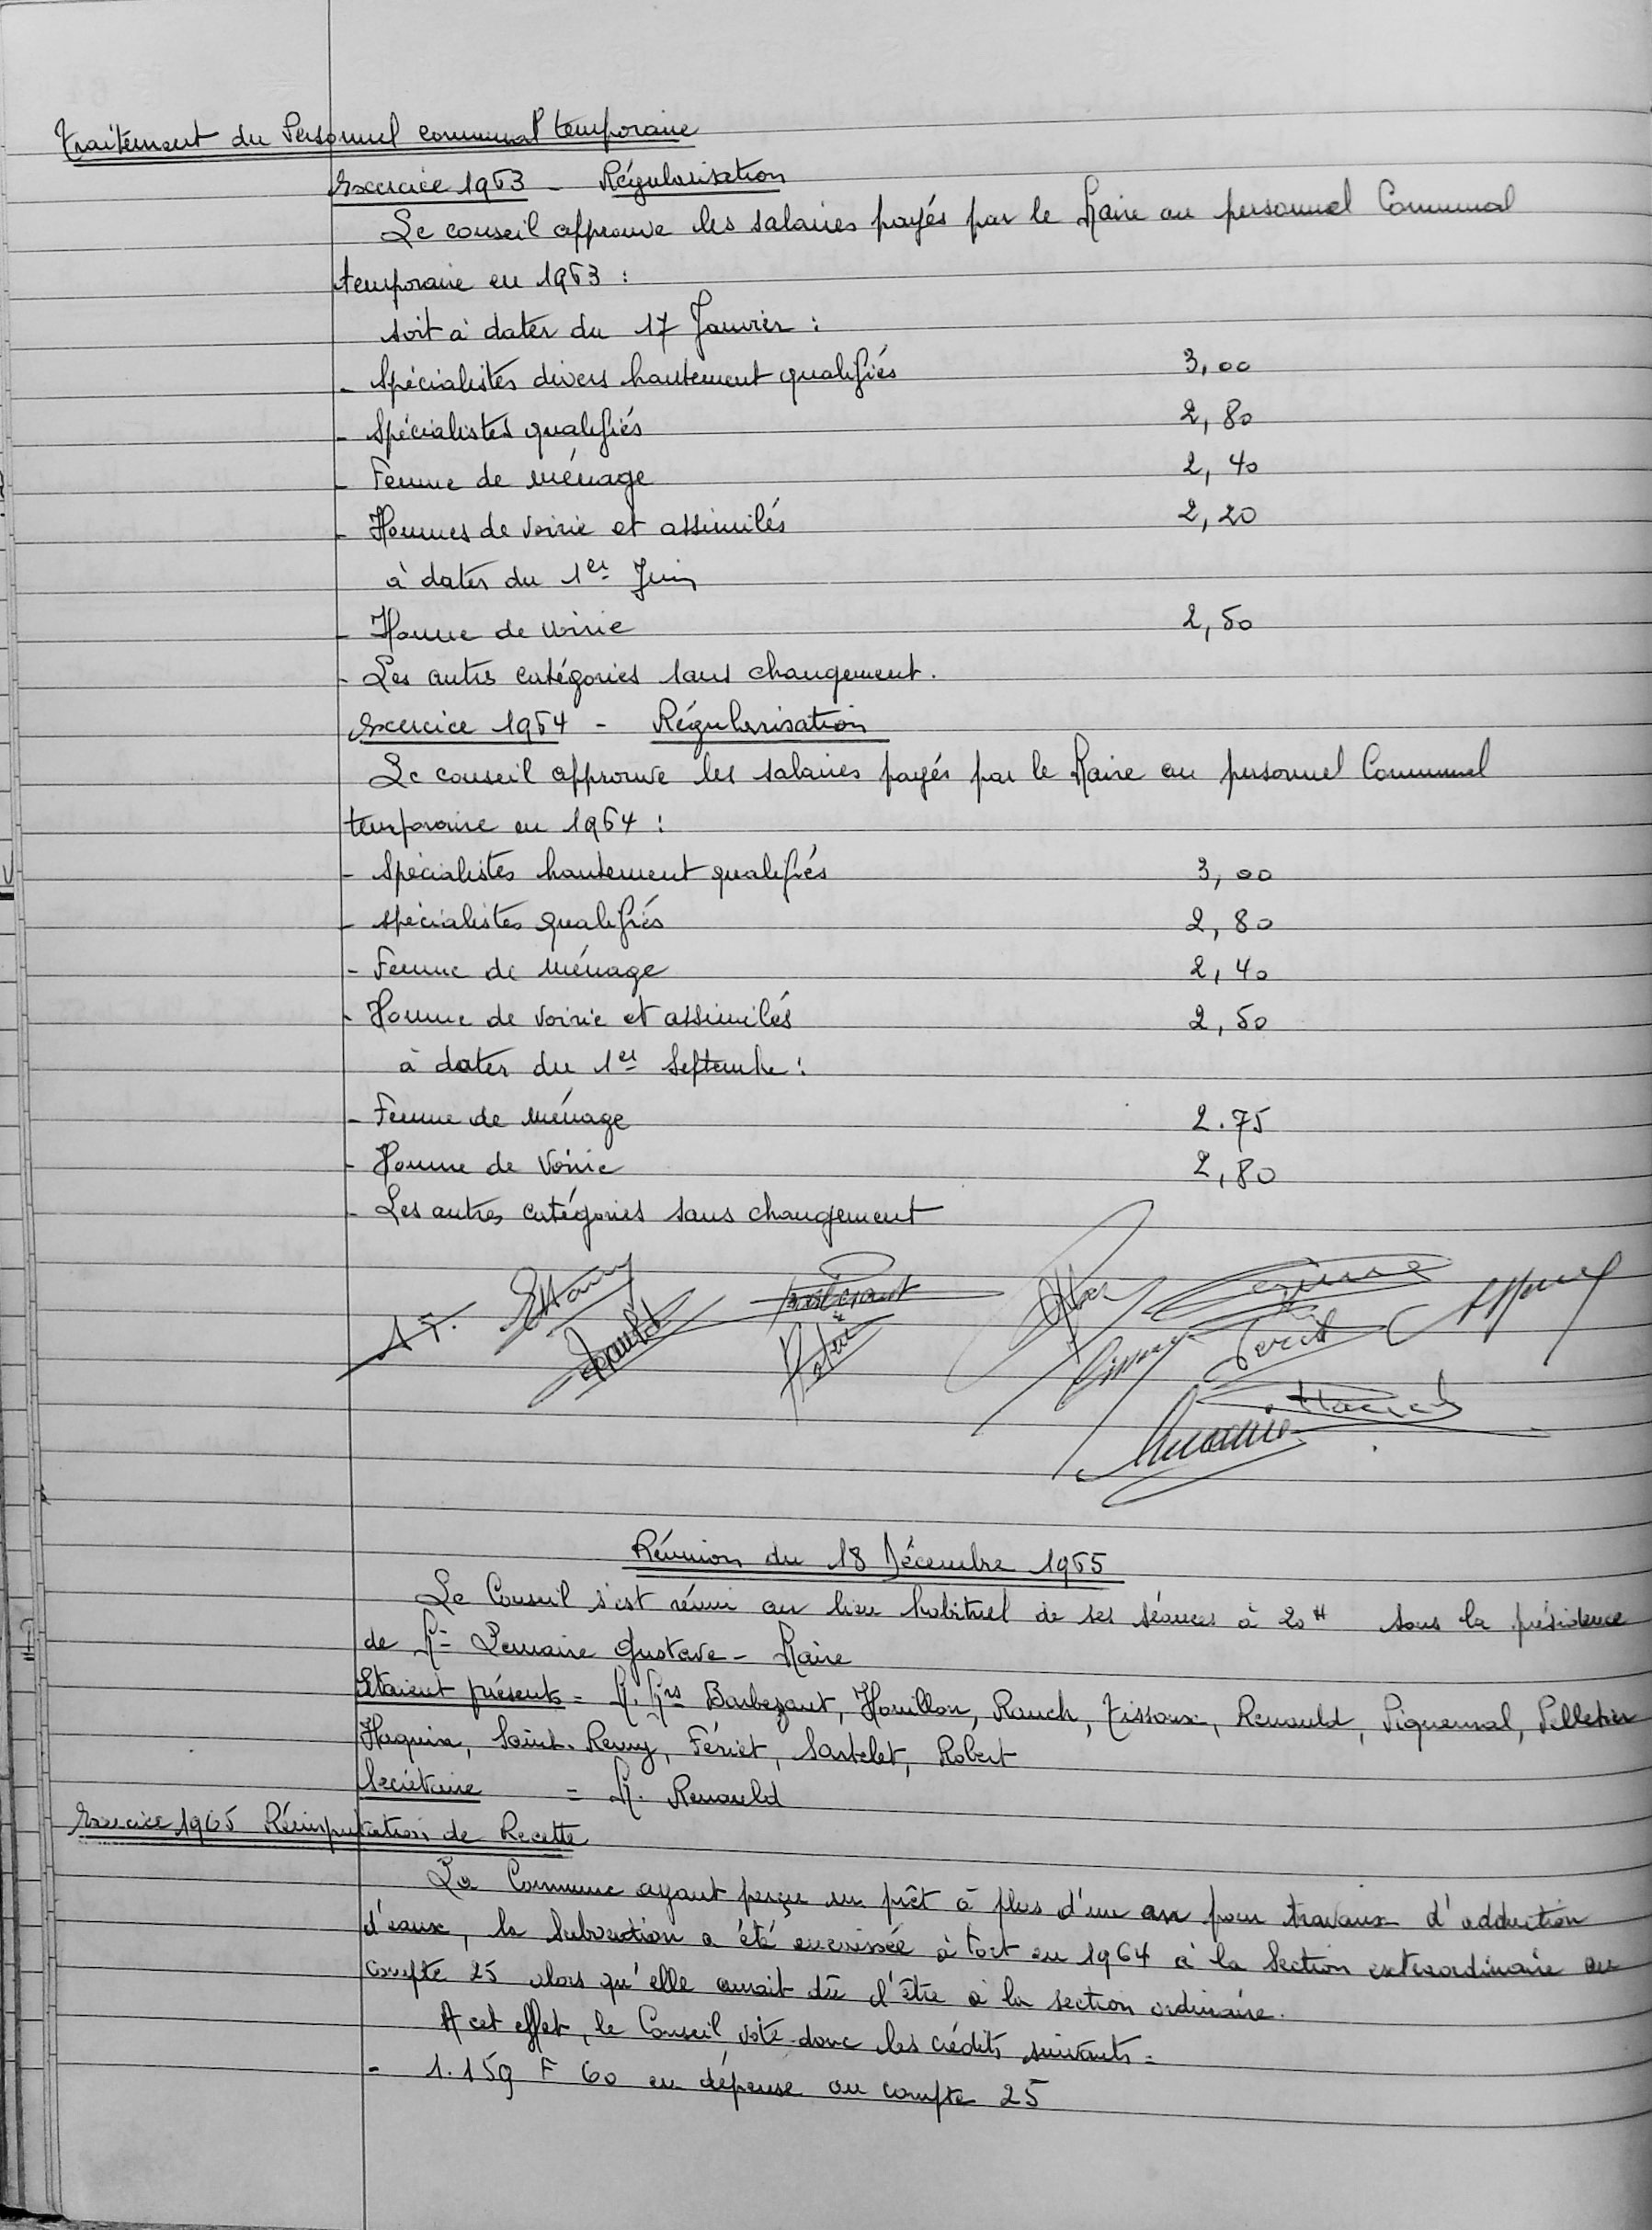 Traitement du Personnel communal temporaire
Exercice 1963 - Régularisation
Le conseil approuve les salaires payés par le Maire au personnel Communal
temporaire en 1963 :
soit à dater du 17 Janvier :
- Spécialistes divers hautement qualifiés 3,00
- Spécialistes qualifiés 2,80
- Femme de ménage 2,40
- Hommes de voirie et assimilés 2,20
à dater du 1er Juin
- Homme de voirie 2,50
- Les autres catégories sans changement.
Exercice 1964 - Régularisation
Le conseil approuve les salaires payés par le Maire au personnel Communal
temporaire en 1964 :
- Spécialistes hautement qualifiés 3,00
- spécialistes qualifiés 2,80
- Femme de ménage 2,40
- Homme de voirie et assimilés 2,50
à dater du 1er Septembre :
- Femme de ménage 2.75
- Homme de Voirie 2,80
- Les autres catégories sans changement
Réunion du 18 Décembre 1965
Le Conseil s'est réuni au lieu habituel de ses séances à 20H sous la présidence
de Mr Lemaire Gustave - Maire
Etaient présents = M. Mrs Barbezant, Houillon, Rauch, Tissoux, Renauld, Piquemal, Pelletier
Haquin, Saint-Remy, Fériet, Sartelet, Robert
Secrétaire = M. Renauld
Exercice 1965 Réimputation de Recette
La Commune ayant perçu un prêt à plus d'un an pour travaux d'adduction
d'eaux, la Subvention a été encaissée à tort en 1964 à la Section extraordinaire au
compte 25 alors qu'elle aurait dû l'être à la section ordinaire.
A cet effet, le Conseil vote donc les crédits suivants =
- 1.159 F 60 en dépense au compte 25